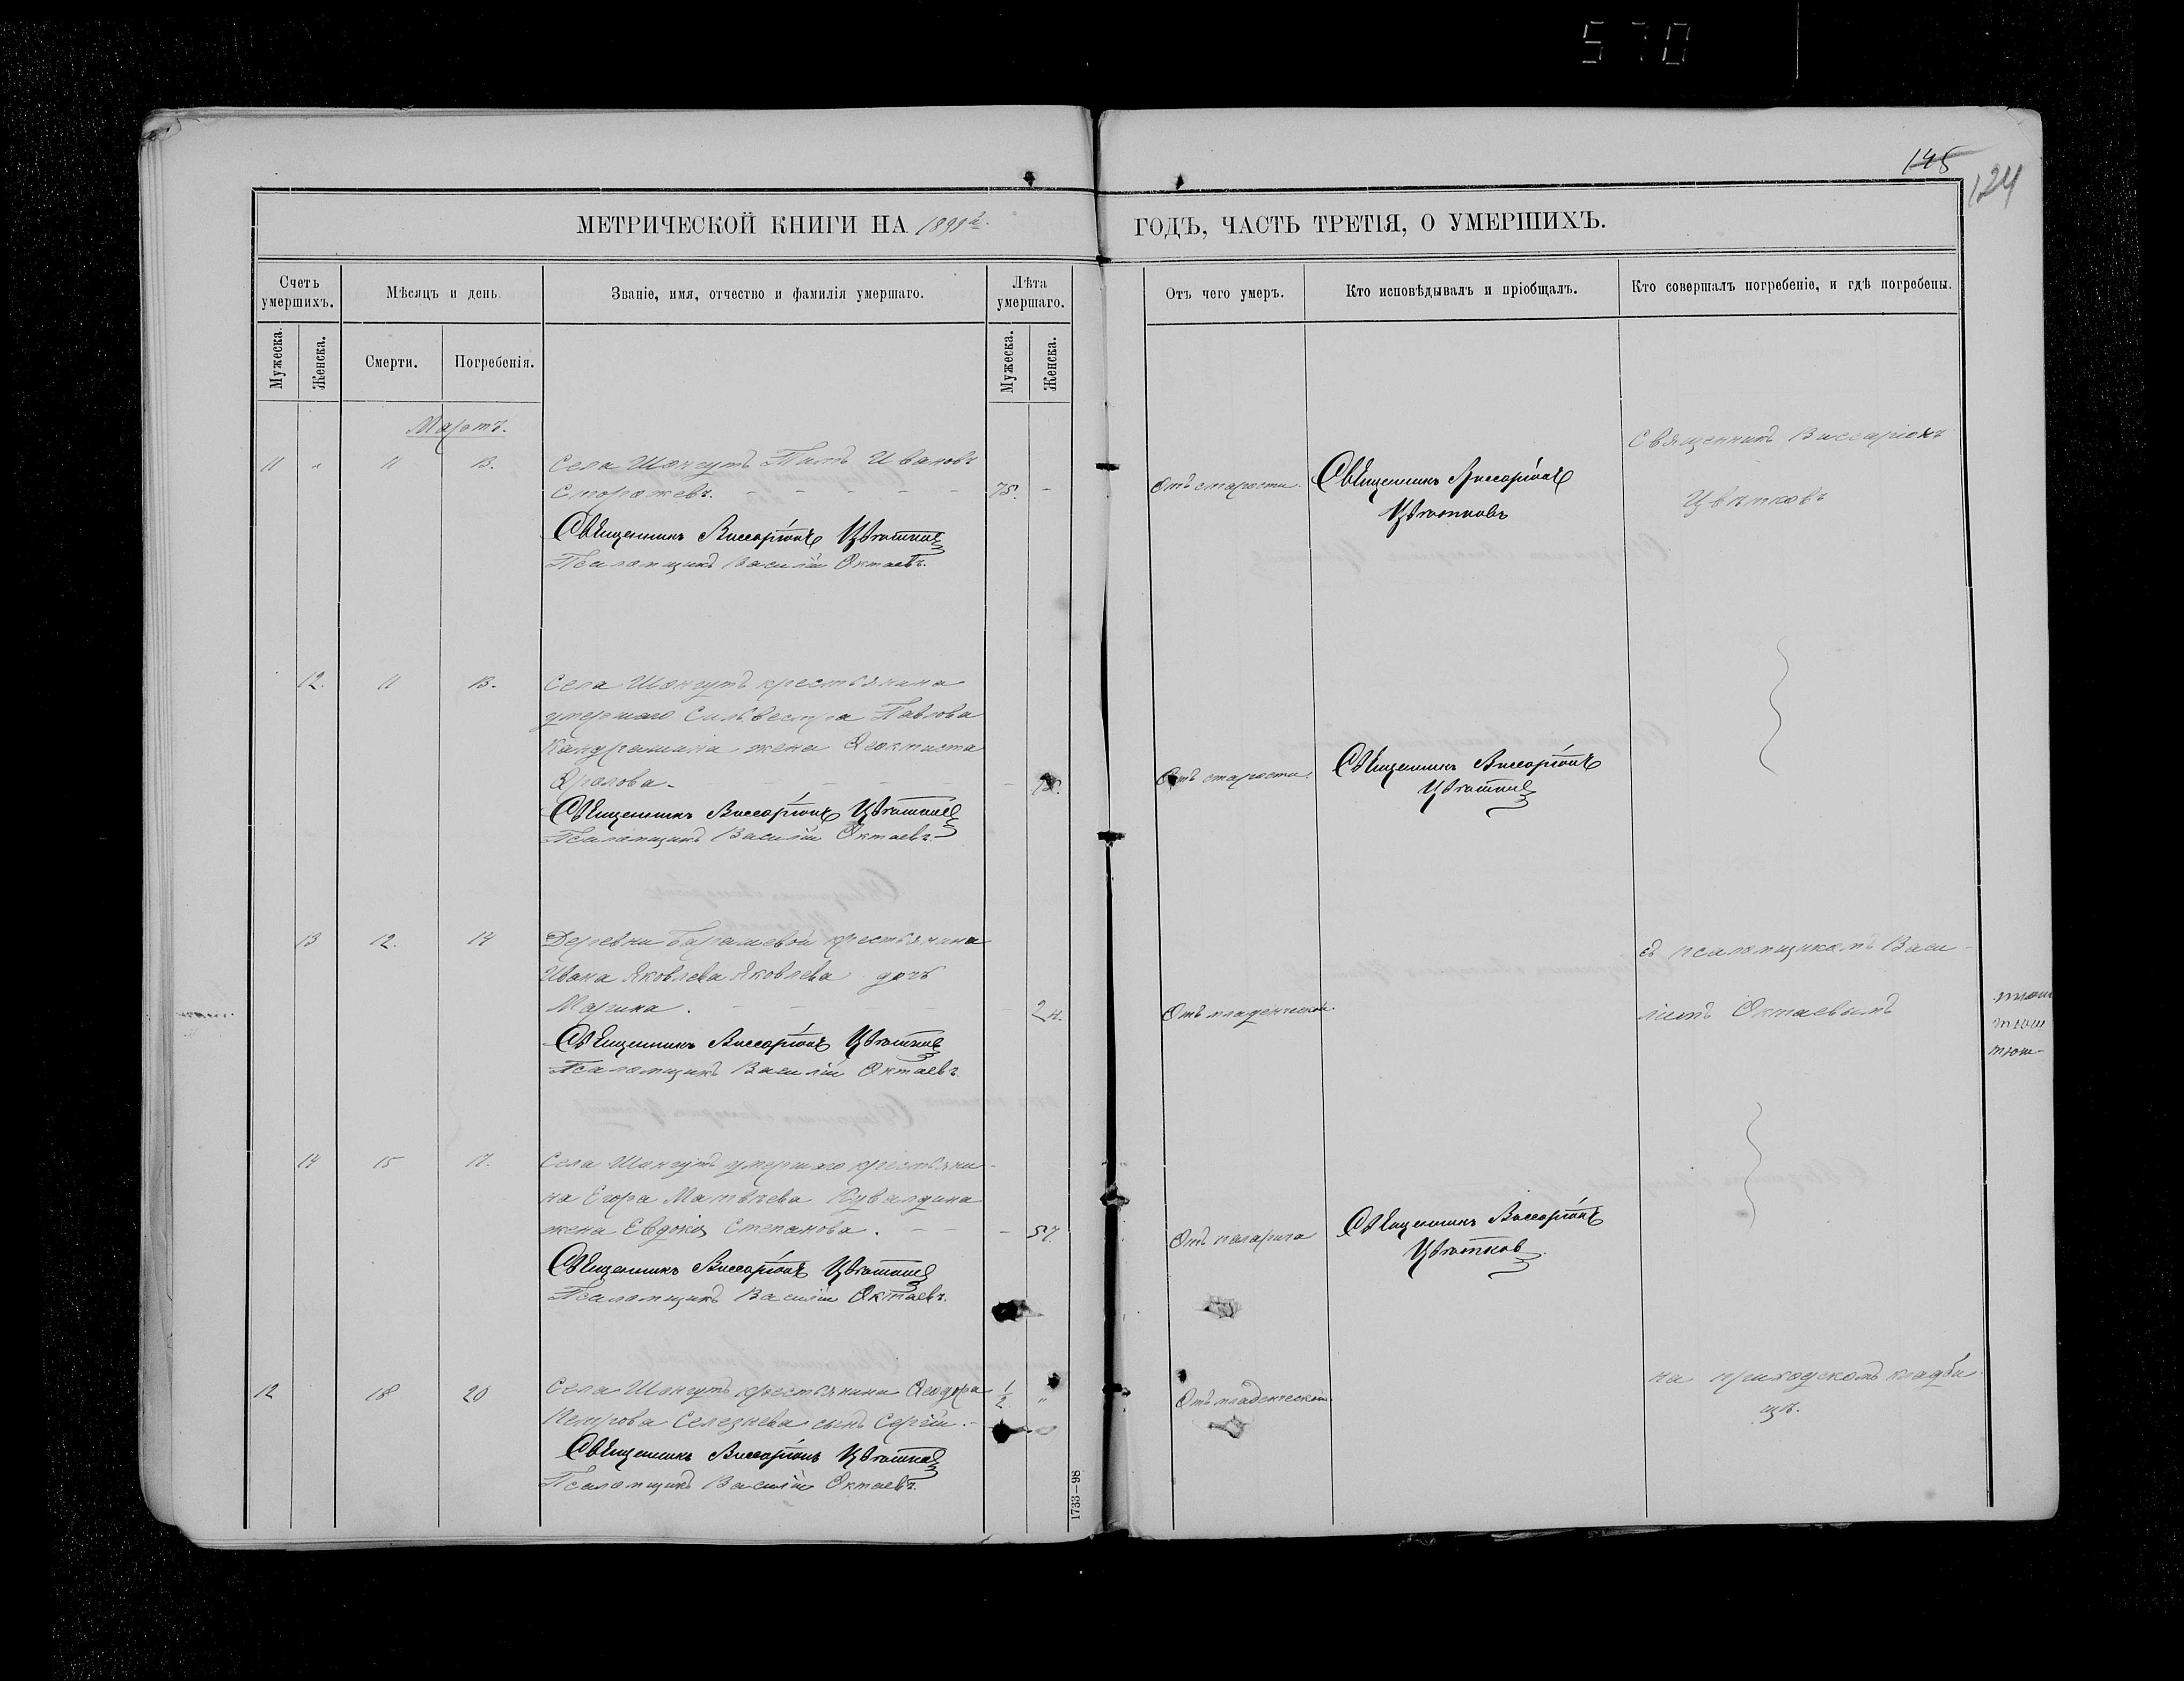 570
145
124
МЕТРИЧЕСКОЙ КНИГИ НА 1899й
ГОДЪ, ЧАСТЬ ТРЕТІЯ, О УМЕРШИХЪ.
Счетъ умершихъ.
Мѣсяцъ и день.
Званіе, имя, отчество и фамилія умершаго.
Лѣта умершаго.
Отъ чего умеръ.
Кто исповѣдывалъ и пріобщалъ.
Кто совершалъ погребеніе, и гдѣ погребены.
Мужеска.
Женска.
Смерти.
Погребенія.
Мужеска.
Женска.
Мартъ.
11 " 11 13. Села Шонгутъ Ивановъ
Сторожевъ. - - - - - 75. -
Отъ старости.
Священникъ Виссаріонъ
Цвѣтковъ
Священникъ Виссаріонъ
Цвѣтковъ
Священникъ Виссаріонъ Цвѣтковъ
Псаломщикъ Василій Октаевъ.
12. 11 13. Села Шонгутъ крестьянина
умершаго Сильвестра Павлова
Кандрашина жена Ѳеоктиста
Фролова.
Отъ старости.
Священникъ Виссаріонъ
Цвѣтковъ
Священникъ Виссаріонъ Цвѣтковъ
Псаломщикъ Василій Октаевъ.
13 12. 14 Деревни Барышевой крестьянина
Ивана Яковлева Яковлева дочь
Марина. - - - 2 н.
Отъ младенческой.
съ псаломщикомъ Васи-
ліемъ Октаевымъ
Священникъ Виссаріонъ Цвѣтковъ
Псаломщикъ Василій Октаевъ.
14 15 17. Села Шонгутъ умершаго крестьяни-
на Егора Матвѣева Кувалдина
жена Евдокія Степанова. - - - 57.
Отъ
Священникъ Виссаріонъ
Цвѣтковъ
Священникъ Виссаріонъ Цвѣтковъ
Псаломщикъ Василій Октаевъ.
12 18 20 Села Шонгутъ крестьянина Ѳеодора 1/2 "
Петрова Селезнева сынъ Сергѣй. -
Отъ младенческой.
на приходскомъ кладби-
щѣ.
Священникъ Виссаріонъ Цвѣтковъ
Псаломщикъ Василій Октаевъ.
1733—98